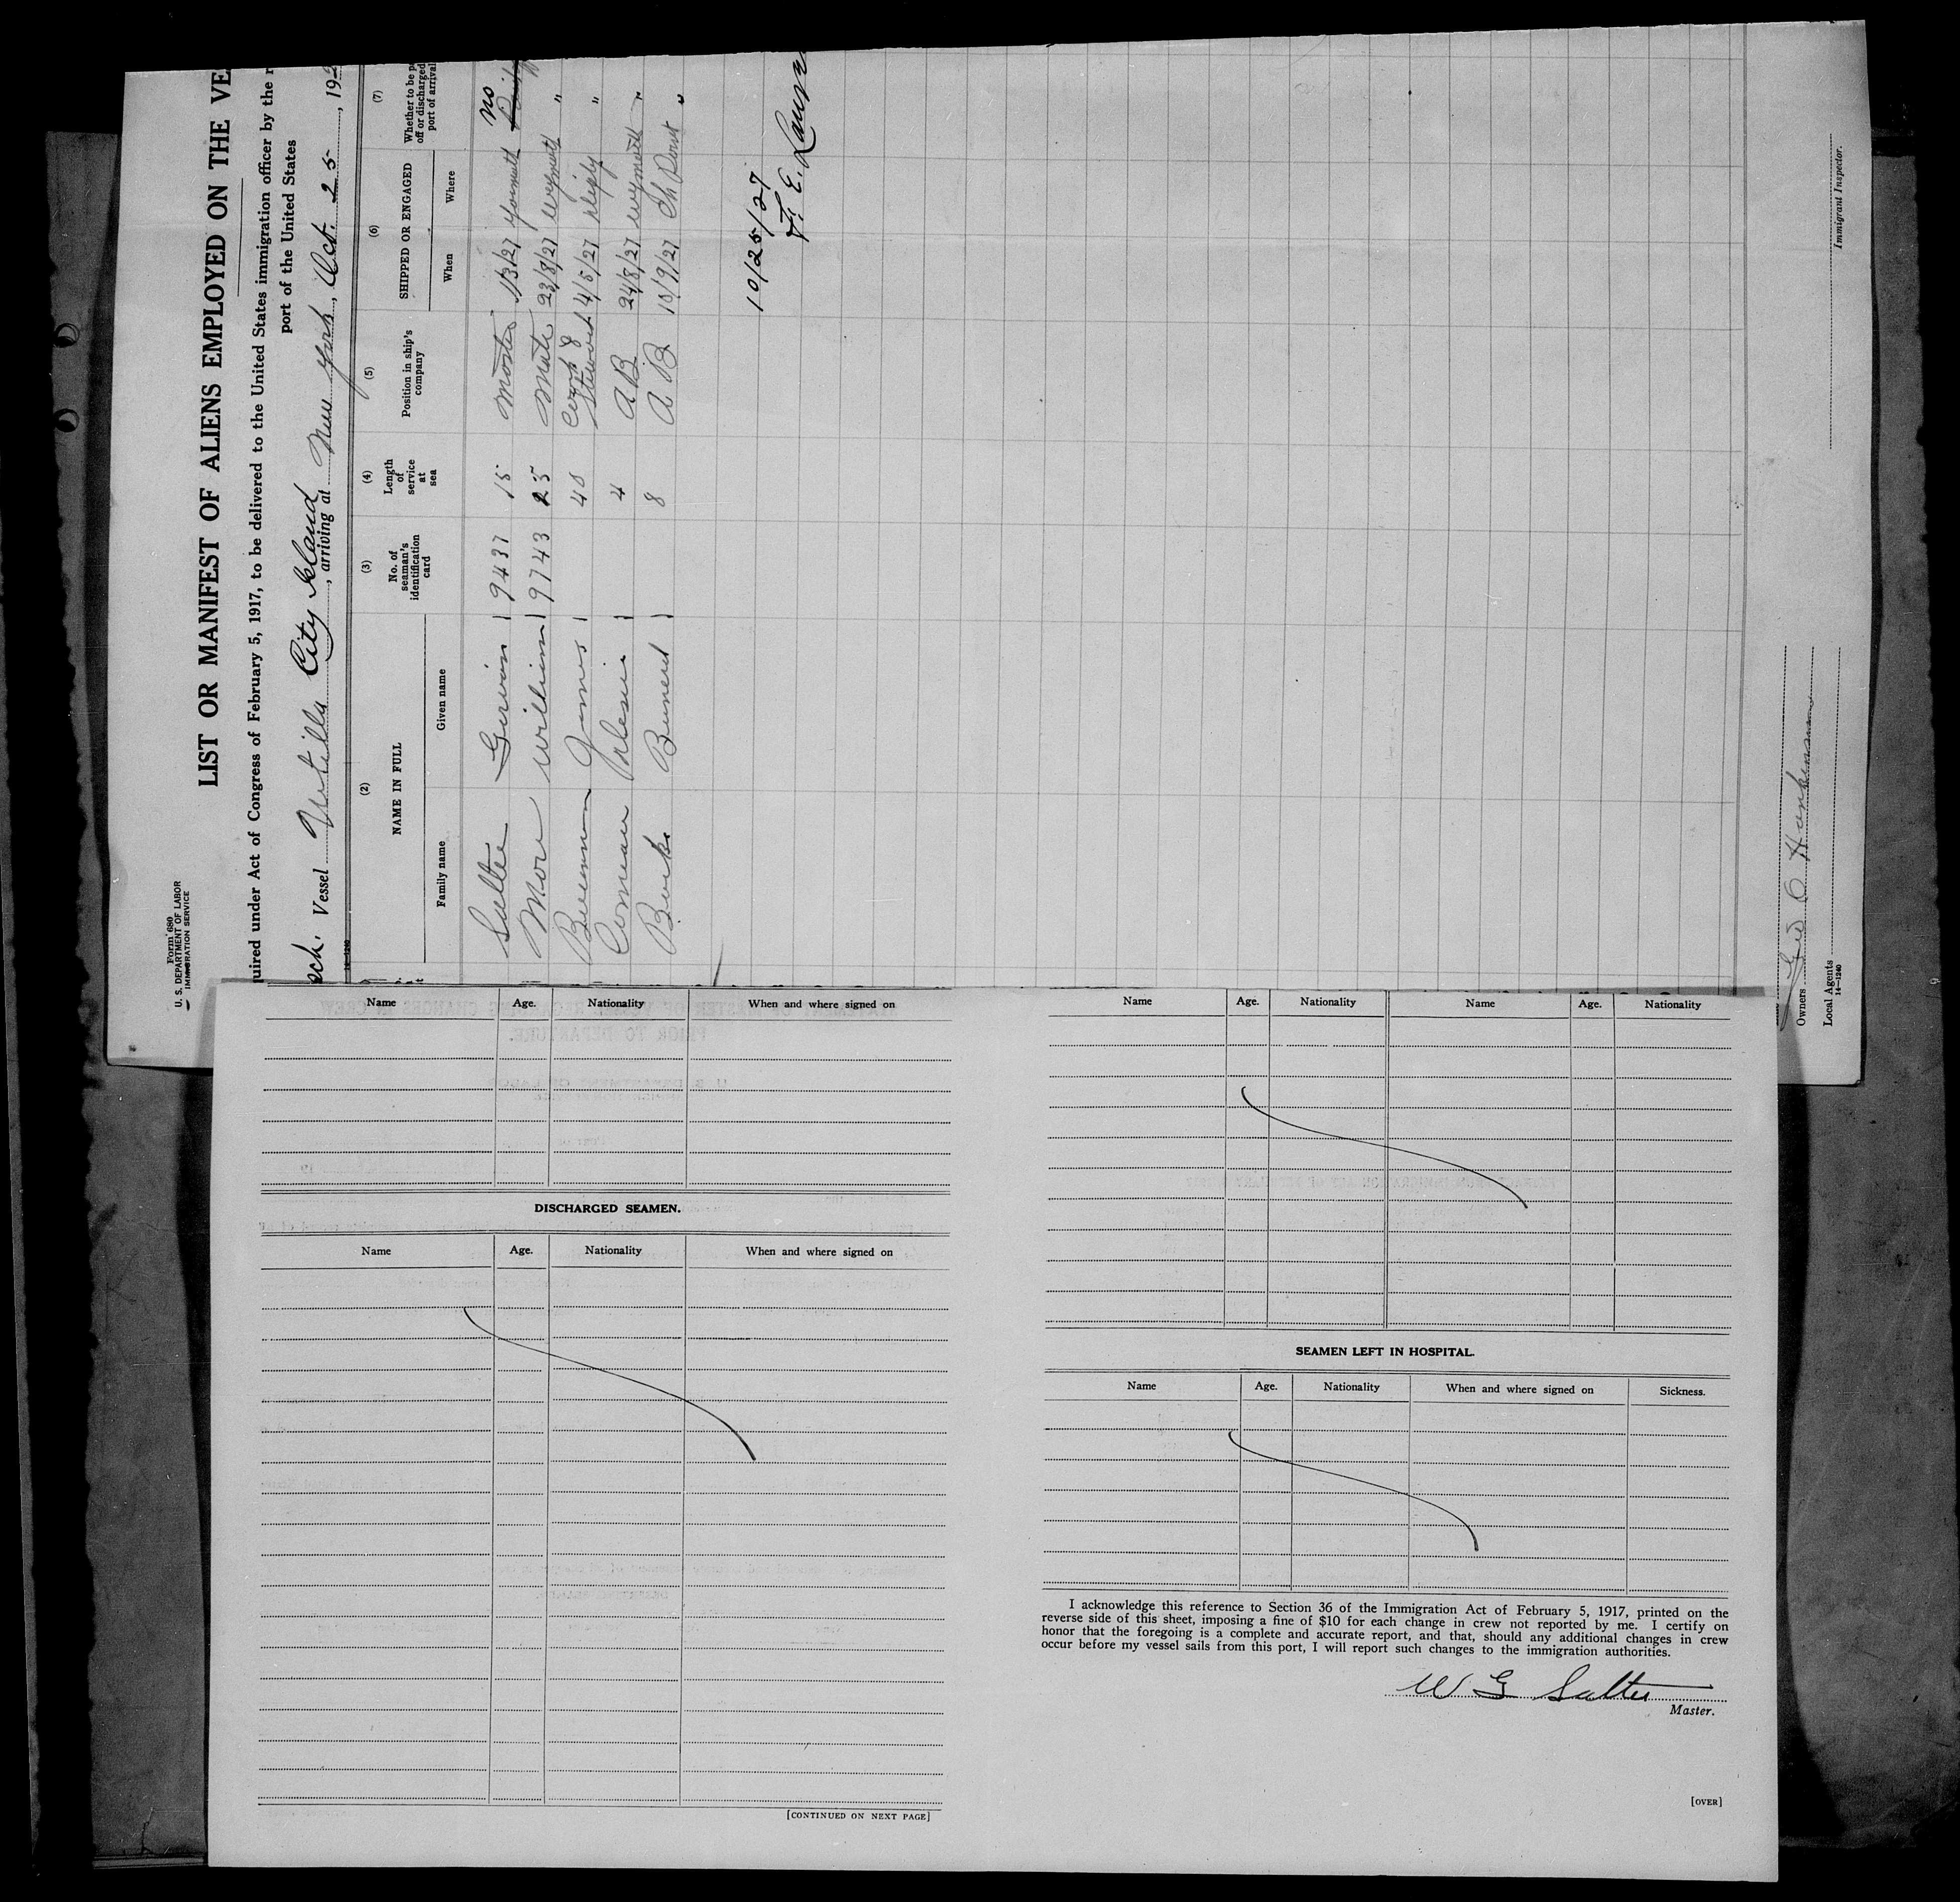 Form 680
U. S. DEPARTMENT OF LABOR
IMMIGRATION SERVICE
LIST OR MANIFEST OF ALIENS EMPLOYED ON THE VE
uired under Act of Congress of February 5, 1917, to be delivered to the United States immigration officer by the r
port of the United States
sch. Vessel Utilla City Island, arriving at New York, Oct. 25, 192
14-1240
(2) (3) (4) (5) (6) (7)
NAME IN FULL
Family name Given name
No. of seaman's identification card
Length of service at sea
Position in ship's company
SHIPPED OR ENGAGED
When Where
Whether to be p
off or discharged
port of arrival
no
Salter Gervin 9437 15 Master 1/3/27 Yarmouth
Moir William 9743 25 Mate 23/8/27 Weymouth "
James 40 Cook & Steward 4/5/27 "
Comeau 4 A B 24/8/27 Weymouth "
Burke 8 A B 10/9/27 "
10/25/27
F. E.
Immigrant Inspector.
Owners
Local Agents
14-1240
Name Age. Nationality When and where signed on
DISCHARGED SEAMEN.
Name Age. Nationality When and where signed on
[CONTINUED ON NEXT PAGE]
Name Age. Nationality Name Age. Nationality
SEAMEN LEFT IN HOSPITAL.
Name Age. Nationality When and where signed on Sickness.
I acknowledge this reference to Section 36 of the Immigration Act of February 5, 1917, printed on the
reverse side of this sheet, imposing a fine of $10 for each change in crew not reported by me. I certify on
honor that the foregoing is a complete and accurate report, and that, should any additional changes in crew
occur before my vessel sails from this port, I will report such changes to the immigration authorities.
W G Salter
Master.
[OVER]